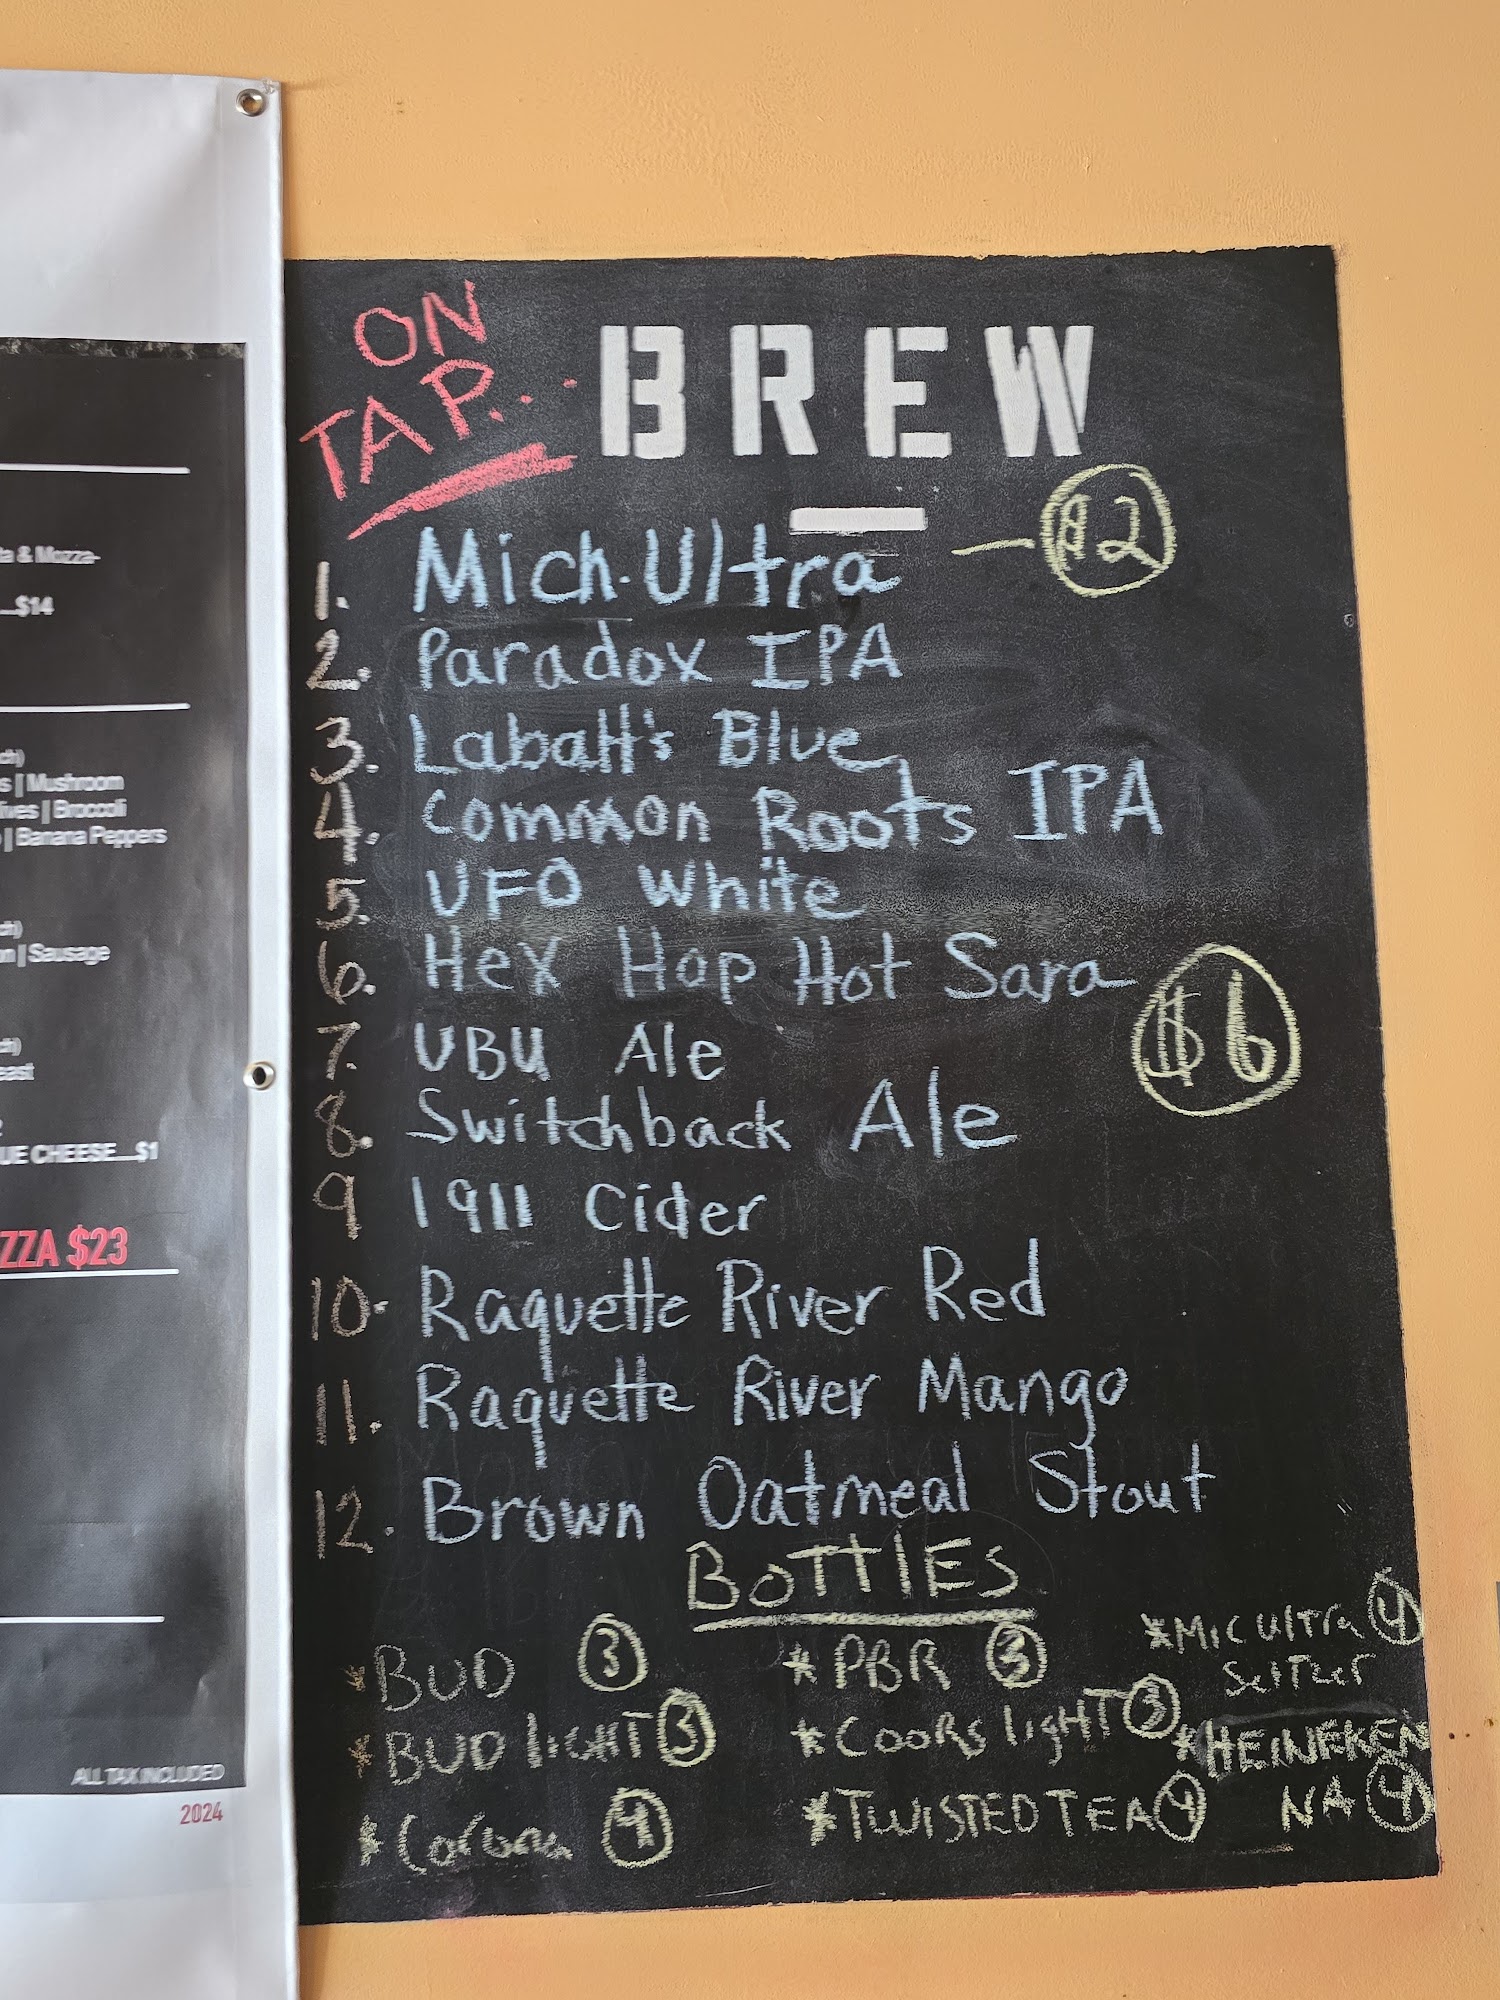 ta & Mozza-
...$14
ch)
s | Mushroom
ives | Broccoli
| Banana Peppers
ch)
on | Sausage
ch)
east
UE CHEESE...$1
ZZA $23
ALL TAX INCLUDED
2024
ON
TAP...
BREW
1. Mich. Ultra — $2
2. Paradox IPA
3. Labatt's Blue
4. Common Roots IPA
5. UFO White
6. Hex Hop Hot Sara
$6
7. UBU Ale
8. Switchback Ale
9 1911 Cider
10. Raquette River Red
11. Raquette River Mango
12. Brown Oatmeal Stout
BOTTLES
*BUD 3
*BUD LIGHT 3
*Corona 4
*PBR 3
*COORS LIGHT 3
*TWISTED TEA 4
*MIC UlTra 4
SelTzer
*HEINEKEN
NA 4